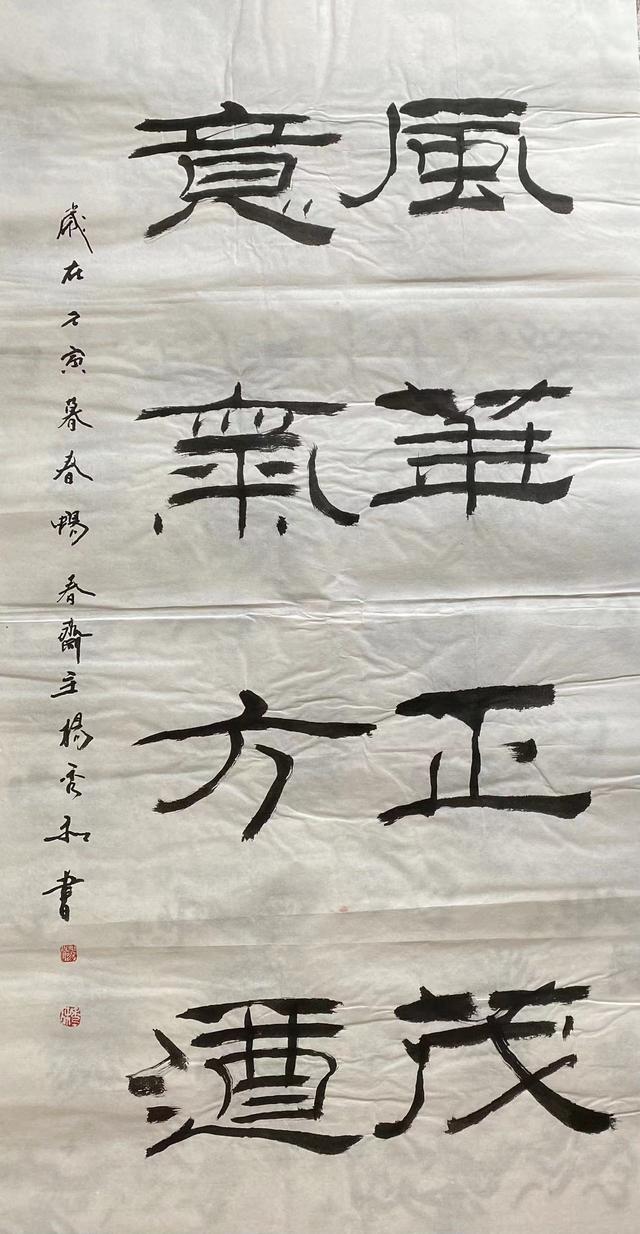 風華正茂
意氣方遒
歲在壬寅暮春暢春齋主楊秀和書